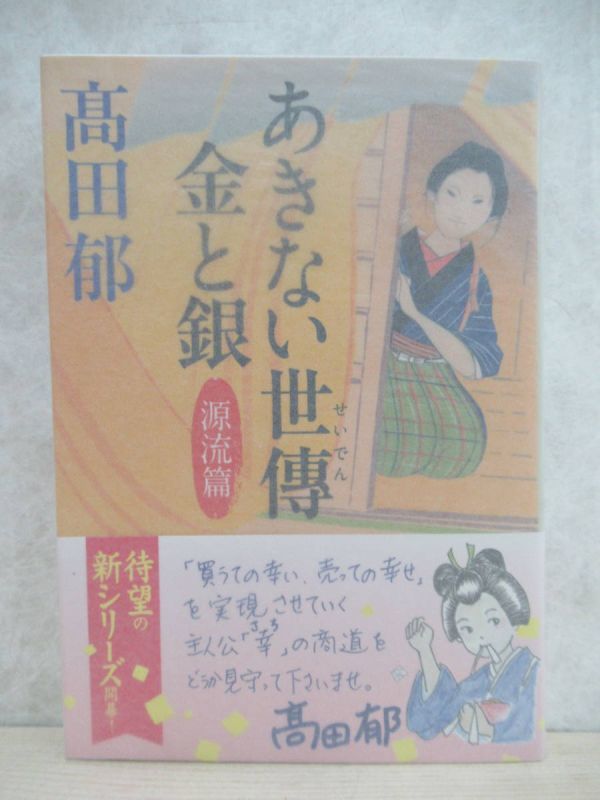 あきない世傳
せいでん
金と銀
源流篇
髙田郁
待望の
新シリーズ
開幕!
「買うての幸い、売っての幸せ」
を実現させていく
主人公「幸」の商道を
さち
どうか見守って下さいませ。
髙田郁